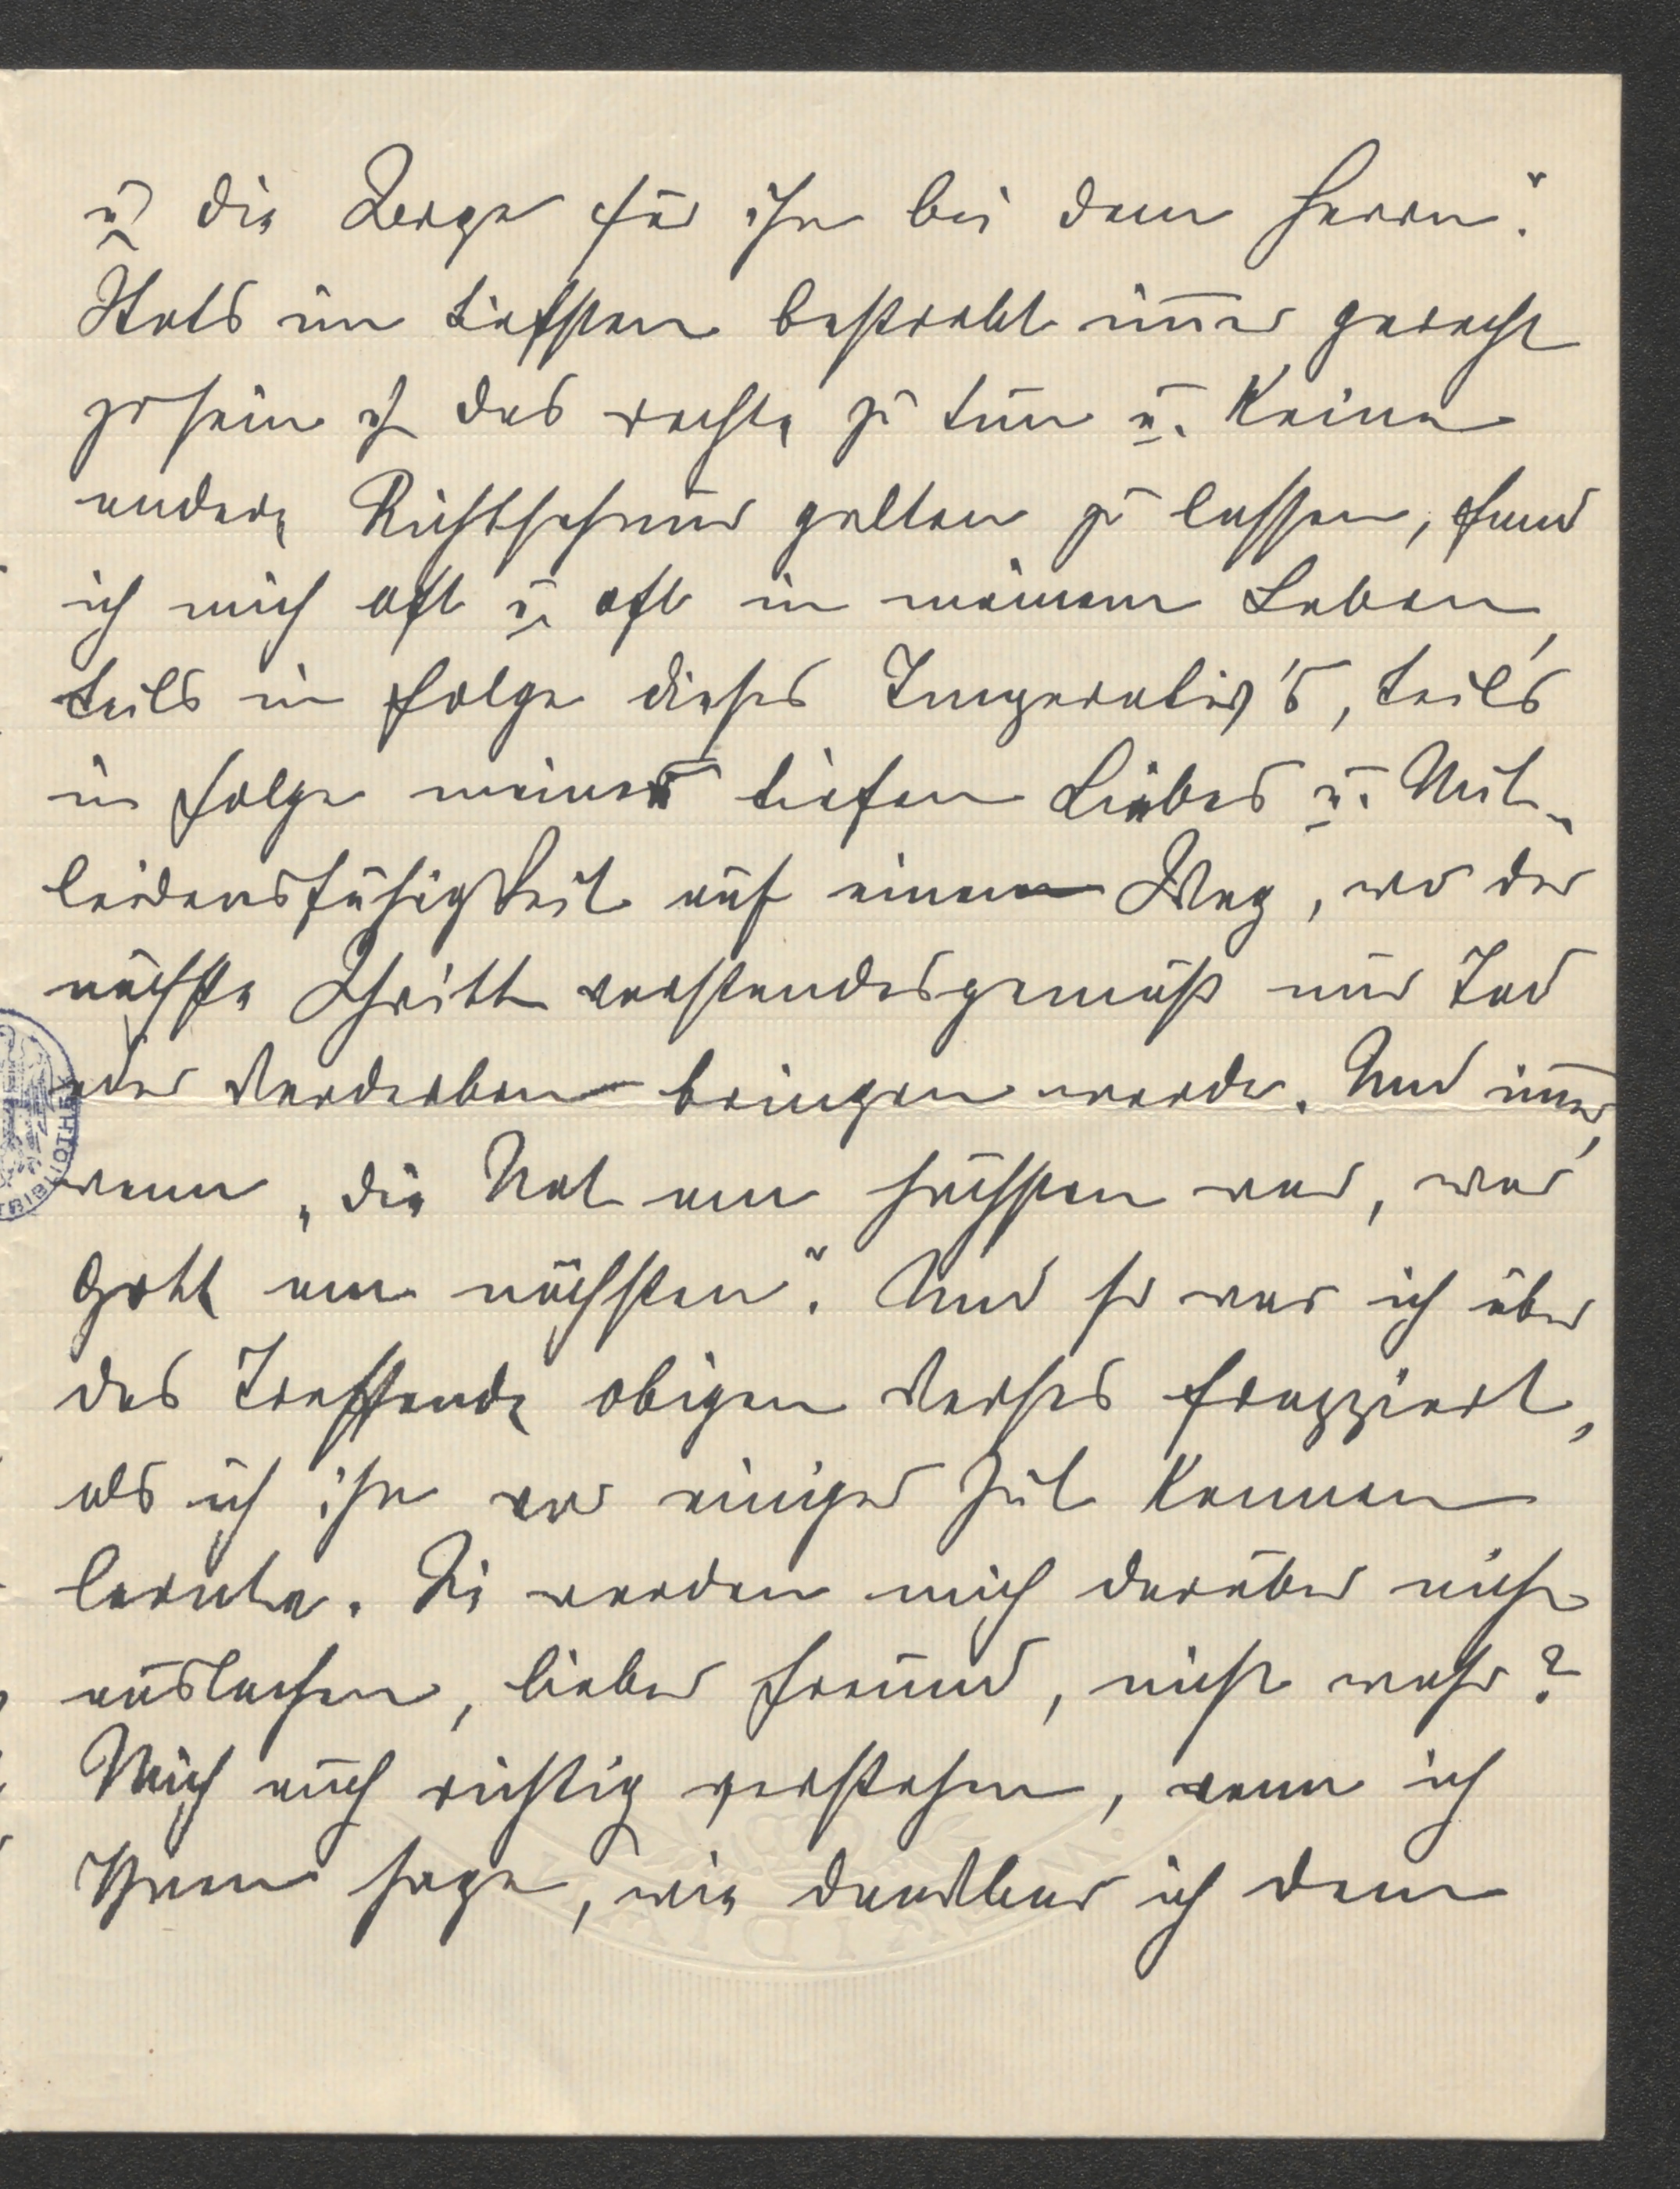 u. die Berge für ihn bei dem Herrn".
Stets im tiefsten bestrebt im̅er gerecht
zu sein u. das rechte zu tun u. keine
andere Richtschnur gelten zu lassen, fand
ich mich oft u. oft in meinem Leben,
teils in folge dieses Imperativ's, teils
in folge meiner tiefen Liebes u. Mit-
leidensfähigkeit auf einem Weg, wo der
nächste Schritt verstandesgemäß nur Tod
oder Verderben bringen werde. Und im̅er,
wenn „die Not am höchsten war, war
Gott am nächsten". Und so war ich über
das Treffende obigen Verses frappiert,
als ich ihn vor einiger Zeit kennen
lernte. Sie werden mich darüber nicht
auslachen, lieber Freund, nicht wahr?
Mich auch richtig verstehen, wenn ich
Ihnen sage, wie dankbar ich dem